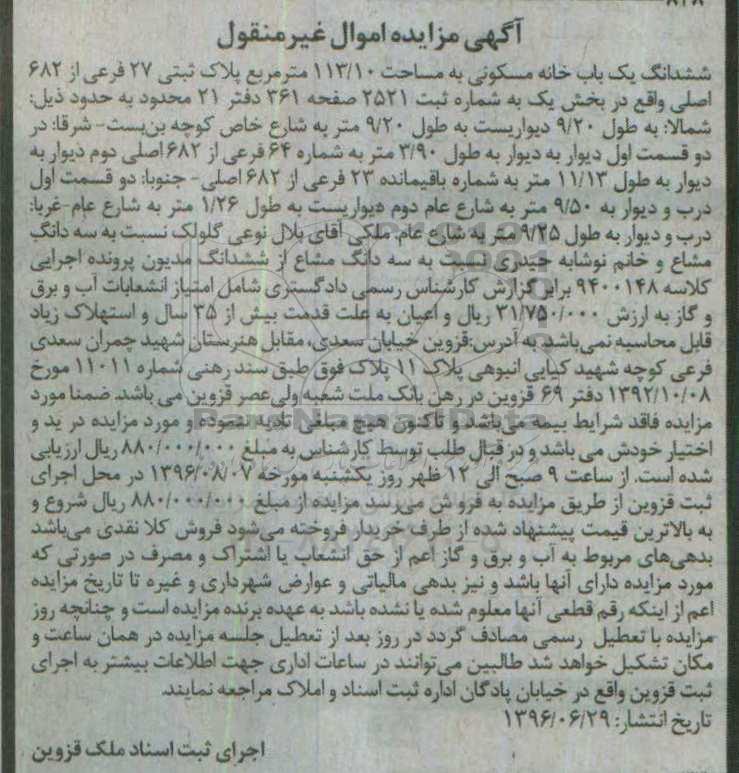 آگهی مزایده اموال غیرمنقول
ششدانگ یک باب خانه مسکونی به مساحت ۱۱۳/۱۰ مترمربع پلاک ثبتی ۲۷ فرعی از ۶۸۲
اصلی واقع در بخش یک به شماره ثبت ۲۵۲۱ صفحه ۳۶۱ دفتر ۲۱ محدود به حدود ذیل:
شمالا: به طول ۹/۲۰ دیواریست به طول ۹/۲۰ متر به شارع خاص کوچه بن‌بست- شرقا: در
دو قسمت اول دیوار به دیوار به طول ۳/۹۰ متر به شماره ۶۴ فرعی از ۶۸۲ اصلی دوم دیوار به
دیوار به طول ۱۱/۱۳ متر به شماره باقیمانده ۲۳ فرعی از ۶۸۲ اصلی- جنوبا: دو قسمت اول
درب و دیوار به ۹/۵۰ متر به شارع عام دوم دیواریست به طول ۱/۲۶ متر به شارع عام-غربا:
درب و دیوار به طول ۹/۲۵ متر به شارع عام. ملکی آقای بلال نوعی گلولک نسبت به سه دانگ
مشاع و خانم نوشابه حیدری نسبت به سه دانگ مشاع از ششدانگ مدیون پرونده اجرایی
کلاسه ۹۴۰۰۱۴۸ برابر گزارش کارشناس رسمی دادگستری شامل امتیاز انشعابات آب و برق
و گاز به ارزش ۳۱/۷۵۰/۰۰۰ ریال و اعیان به علت قدمت بیش از ۳۵ سال و استهلاک زیاد
قابل محاسبه نمی‌باشد به آدرس:قزوین خیابان سعدی، مقابل هنرستان شهید چمران سعدی
فرعی کوچه شهید کیایی انبوهی پلاک ۱۱ پلاک فوق طبق سند رهنی شماره ۱۱۰۱۱ مورخ
۱۳۹۲/۱۰/۰۸ دفتر ۶۹ قزوین در رهن بانک ملت شعبه ولی‌عصر قزوین می باشد. ضمنا مورد
مزایده فاقد شرایط بیمه می‌باشد و تاکنون هیچ مبلغی تادیه ننموده و مورد مزایده در ید و
اختیار خودش می باشد و در قبال طلب توسط کارشناس به مبلغ ۸۸۰/۰۰۰/۰۰۰ ریال ارزیابی
شده است. از ساعت ۹ صبح الی ۱۲ ظهر روز یکشنبه مورخه ۱۳۹۶/۰۸/۰۷ در محل اجرای
ثبت قزوین از طریق مزایده به فروش می‌رسد مزایده از مبلغ ۸۸۰/۰۰۰/۰۰۰ ریال شروع و
به بالاترین قیمت پیشنهاد شده از طرف خریدار فروخته می‌شود فروش کلا نقدی می‌باشد
بدهی‌های مربوط به آب و برق و گاز اعم از حق انشعاب یا اشتراک و مصرف در صورتی که
مورد مزایده دارای آنها باشد و نیز بدهی مالیاتی و عوارض شهرداری و غیره تا تاریخ مزایده
اعم از اینکه رقم قطعی آنها معلوم شده یا نشده باشد به عهده برنده مزایده است و چنانچه روز
مزایده با تعطیل رسمی مصادف گردد در روز بعد از تعطیل جلسه مزایده در همان ساعت و
مکان تشکیل خواهد شد طالبین می‌توانند در ساعات اداری جهت اطلاعات بیشتر به اجرای
ثبت قزوین واقع در خیابان پادگان اداره ثبت اسناد و املاک مراجعه نمایند.
تاریخ انتشار: ۱۳۹۶/۰۶/۲۹
اجرای ثبت اسناد ملک قزوین